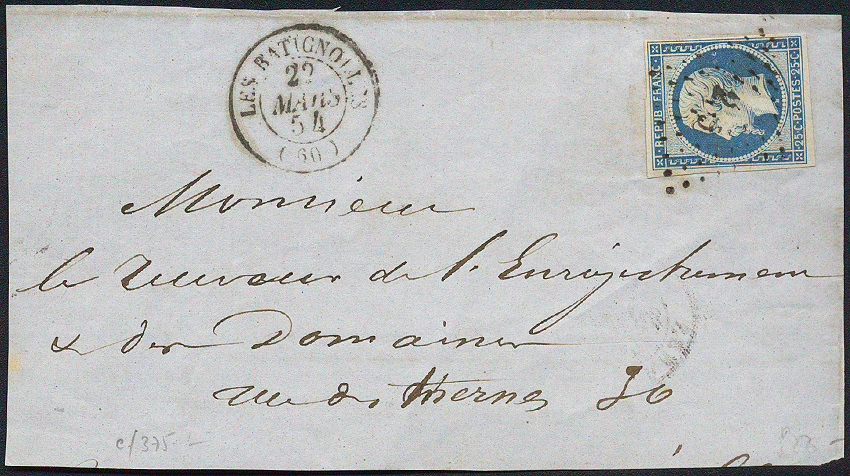 LES BATIGNOLLES
22
MARS
54
(60)
REPUB. FRANC.
25.C.POSTES.25.C.
Monsieur
le Receveur de l'Enregistrement
& des Domaines
rue des thernes 30
c/375 -